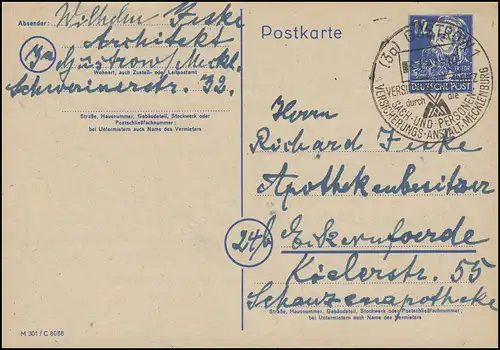 Absender: Wilhelm Fiske
Architekt
3a Güstrow/Meckl.
Wohnort, auch Zustell- oder Leitpostamt
Schwerinerstr. 32.
Straße, Hausnummer, Gebäudeteil, Stockwerk oder
Postschließfachnummer;
bei Untermietern auch Name des Vermieters
M 301 / C 8088
Postkarte
12
DEUTSCHE POST
(3a) GÜSTROW 1
durch die
SACH- UND PERSONEN
VERSICHERUNGS-ANSTALT MECKLENBURG
Herrn
Richard Fiske
Apothekenbesitzer
24b Eckernfoerde
Kielerstr. 55
Schanzenapotheke
Straße, Hausnummer, Gebäudeteil, Stockwerk oder Postschließfachnummer;
bei Untermietern auch Name des Vermieters